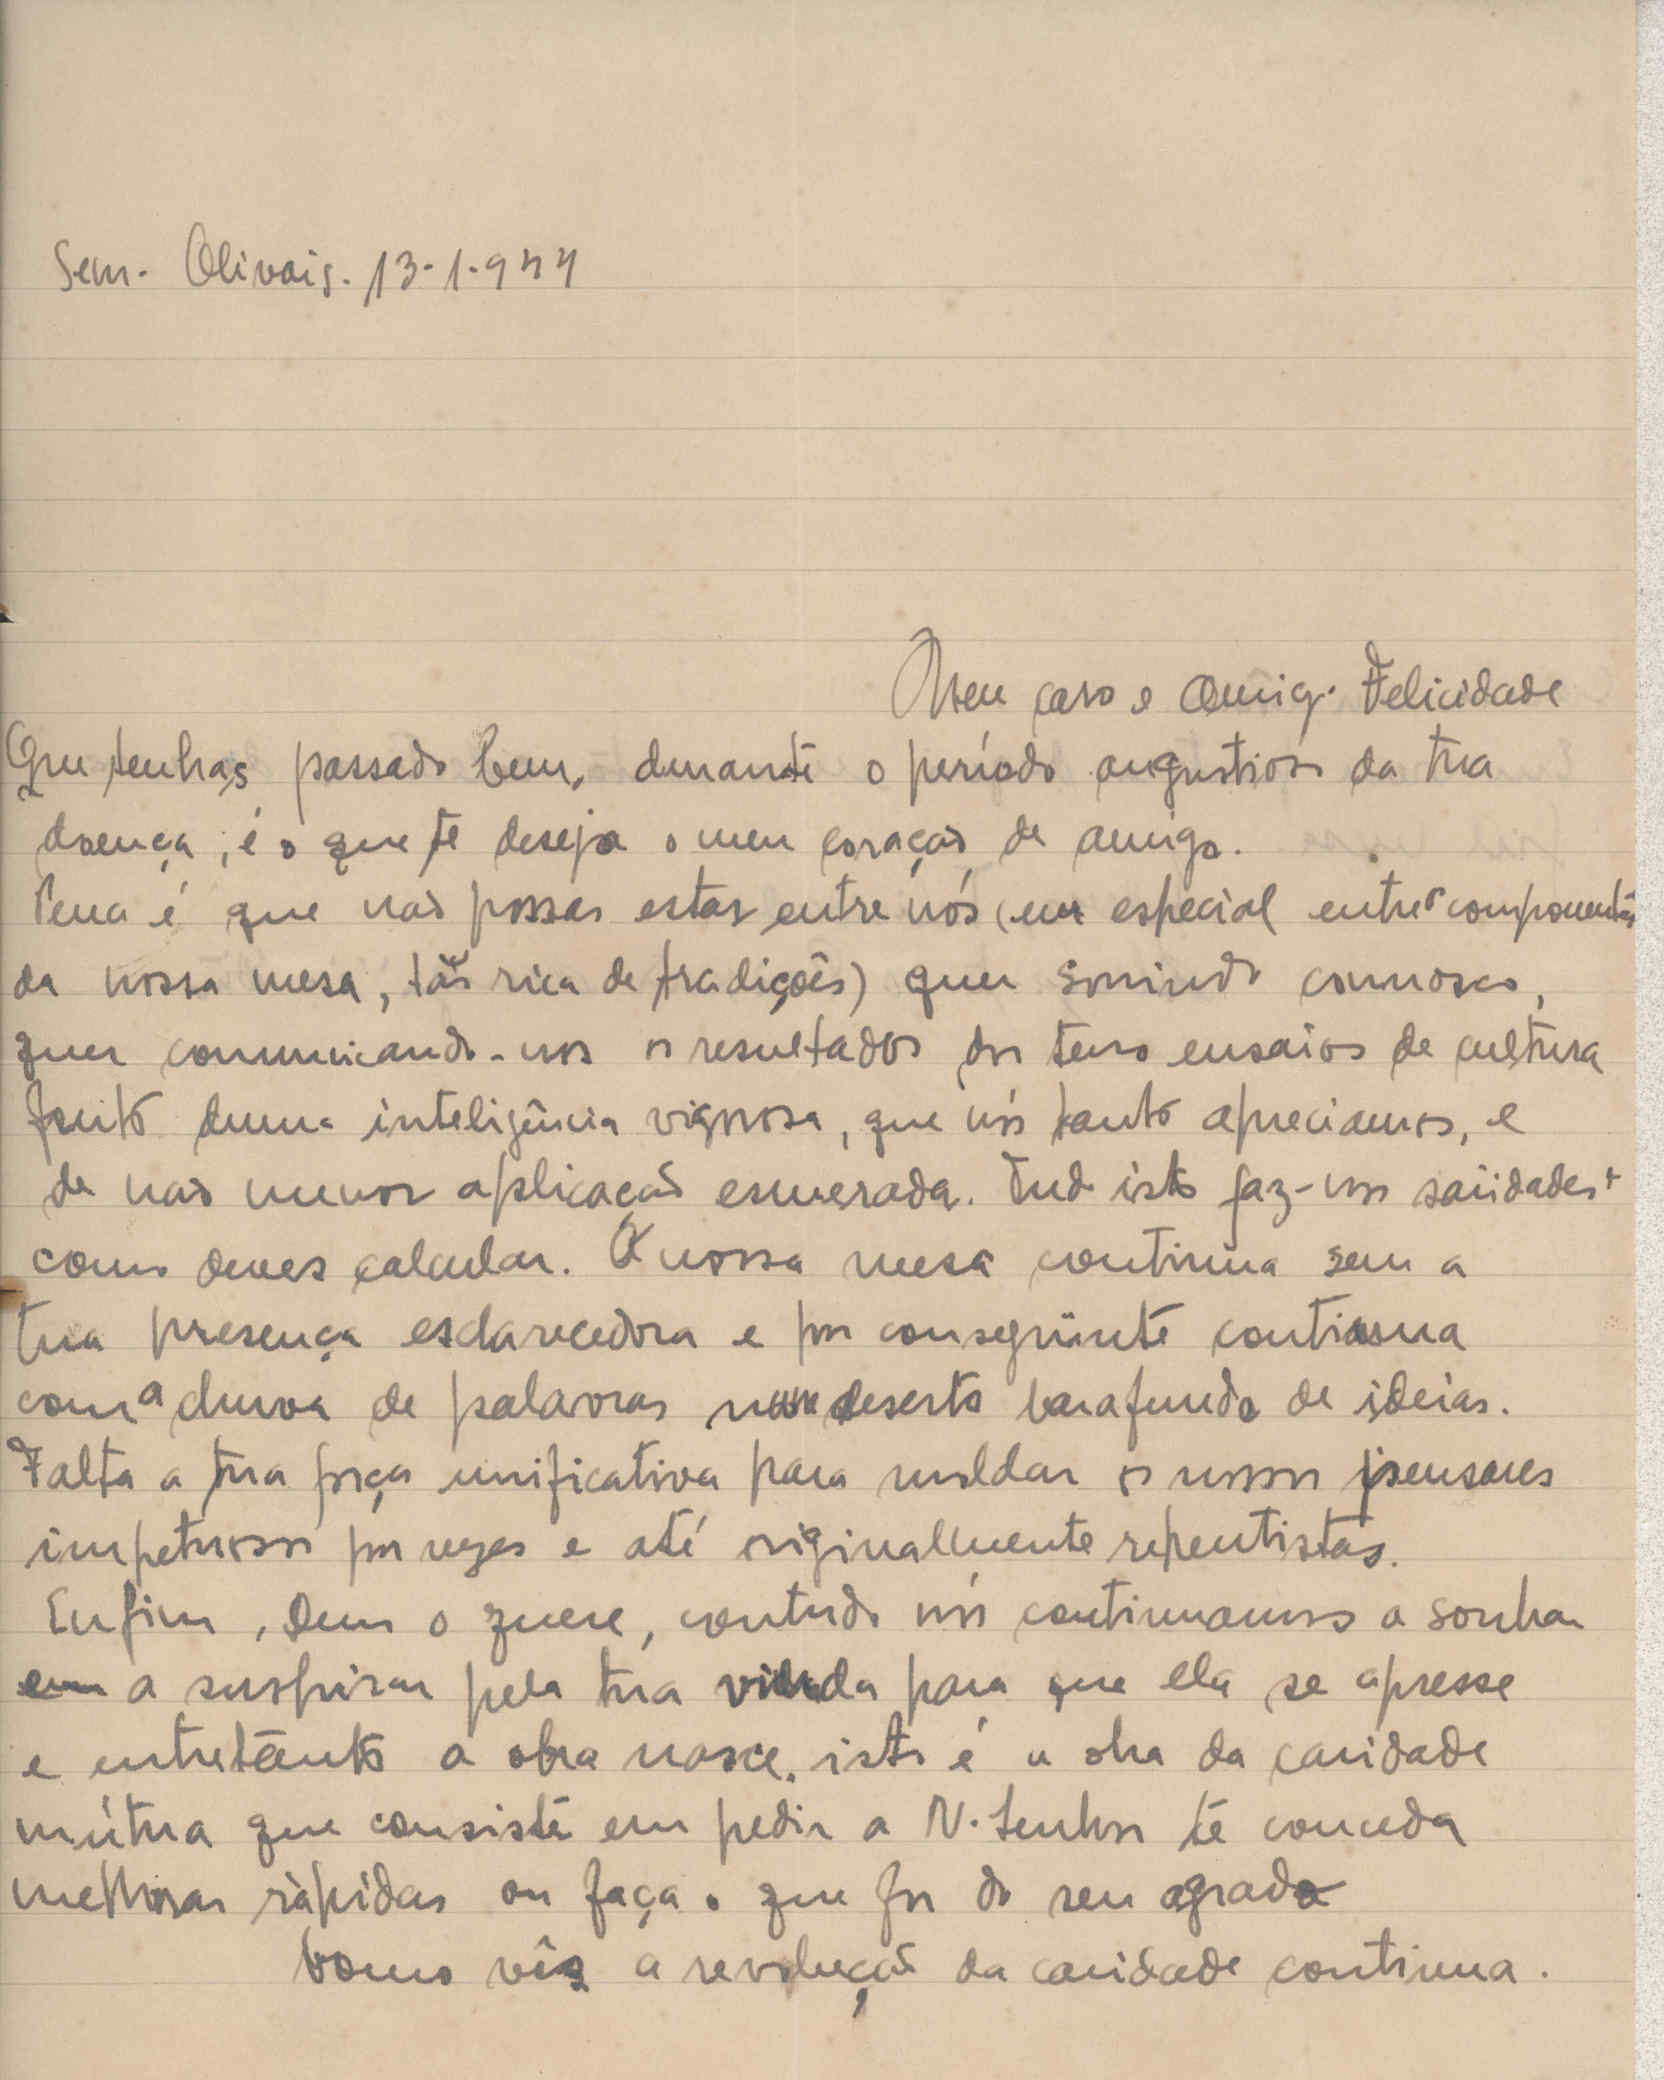 Sem. Olivais. 13-1-944
Meu caro e Amig. Felicidade
Que tenhas passado bem, durante o período angustioso da tua
doença, é o que te deseja o meu coração de amigo.
Pena é que não possas estar entre nós (em especial entre componentes
da nossa mesa, tão rica de tradições) quer sorrindo connosco,
quer comunicando-nos os resultados dos teus ensaios de cultura
fruto duma inteligência vigorosa, que nós tanto apreciamos, e
de não menor aplicação esmerada. Tudo isto faz-nos saüdades
como deves calcular. A nossa mesa continua sem a
tua presença esclarecedora e por conseguinte continua
com a chuva de palavras num deserto barafundo de ideias.
Falta a tua força unificativa para moldar os nossos pensares
impetuosos por vezes e até originalmente repentistas.
Enfim, Deus o quere, contudo nós continuamos a sonhar
em a suspirar pela tua vinda para que ela se apresse
e entretanto a obra nasce, isto é a obra da caridade
mútua que consiste em pedir a N. Senhor te conceda
melhoras ràpidas ou faça o que for do seu agrado
Como vês a revolução da caridade continua.